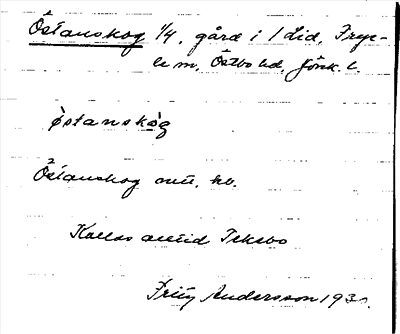 Östanskog 1/4, gård i 1 lid, Frye-
le sn, Östbo hd, Jönk. l.
östanskog
Östanskog enl. kb.
Kallas alltid Tekebo
Fritz Andersson 193